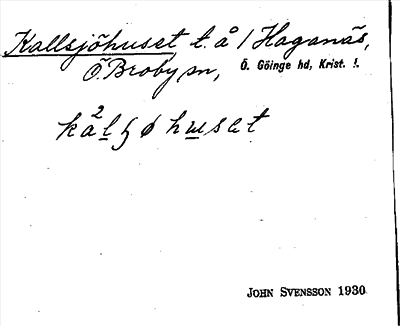 Kallsjöhuset t. å 1 Haganäs,
Ö Broby sn, Ö. Göinge hd, Krist. l.
JOHN SVENSSON 1930